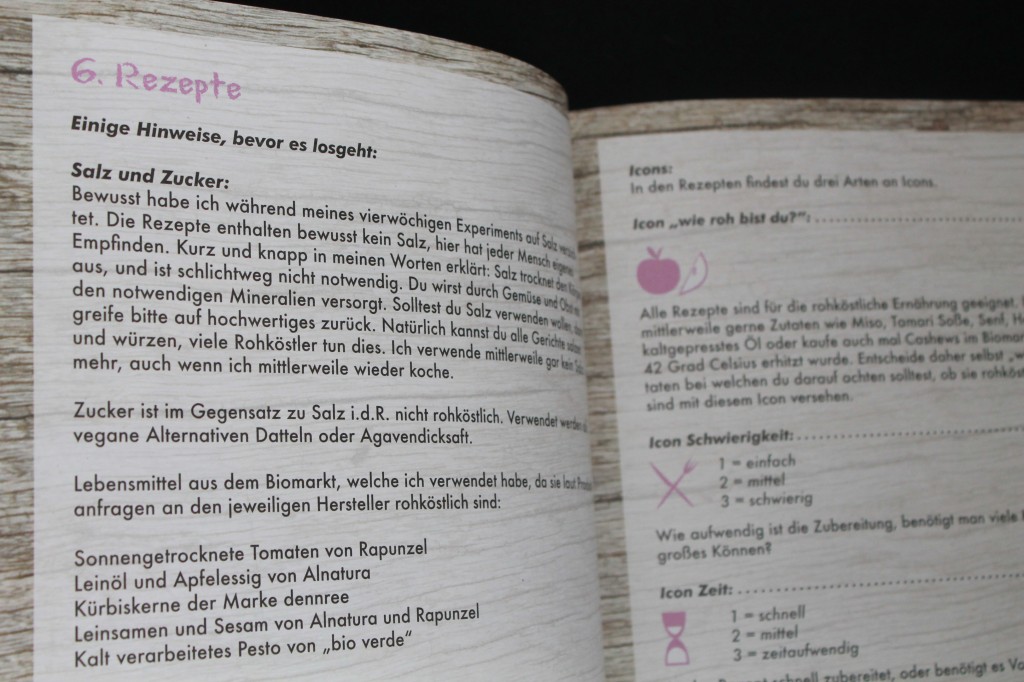 6. Rezepte
Einige Hinweise, bevor es losgeht:
Salz und Zucker:
Bewusst habe ich während meines vierwöchigen Experiments auf Salz
tet. Die Rezepte enthalten bewusst kein Salz, hier hat jeder Mensch
Empfinden. Kurz und knapp in meinen Worten erklärt: Salz trocknet den
aus, und ist schlichtweg nicht notwendig. Du wirst durch Gemüse und Obst
den notwendigen Mineralien versorgt. Solltest du Salz verwenden wollen,
greife bitte auf hochwertiges zurück. Natürlich kannst du alle Gerichte
und würzen, viele Rohköstler tun dies. Ich verwende mittlerweile gar kein
mehr, auch wenn ich mittlerweile wieder koche.
Zucker ist im Gegensatz zu Salz i.d.R. nicht rohköstlich. Verwendet werden
vegane Alternativen Datteln oder Agavendicksaft.
Lebensmittel aus dem Biomarkt, welche ich verwendet habe, da sie laut
anfragen an den jeweiligen Hersteller rohköstlich sind:
Sonnengetrocknete Tomaten von Rapunzel
Leinöl und Apfelessig von Alnatura
Kürbiskerne der Marke dennree
Leinsamen und Sesam von Alnatura und Rapunzel
Kalt verarbeitetes Pesto von „bio verde"
Icons:
In den Rezepten findest du drei Arten an Icons.
Icon „wie roh bist du?":
Alle Rezepte sind für die rohköstliche Ernährung geeignet.
mittlerweile gerne Zutaten wie Miso, Tamari Soße, Senf,
kaltgepresstes Öl oder kaufe auch mal Cashews im
42 Grad Celsius erhitzt wurde. Entscheide daher selbst
taten bei welchen du darauf achten solltest, ob sie
sind mit diesem Icon versehen.
Icon Schwierigkeit:
1 = einfach
2 = mittel
3 = schwierig
Wie aufwendig ist die Zubereitung, benötigt man viele
großes Können?
Icon Zeit:
1 = schnell
2 = mittel
3 = zeitaufwendig
schnell zubereitet, oder benötigt es